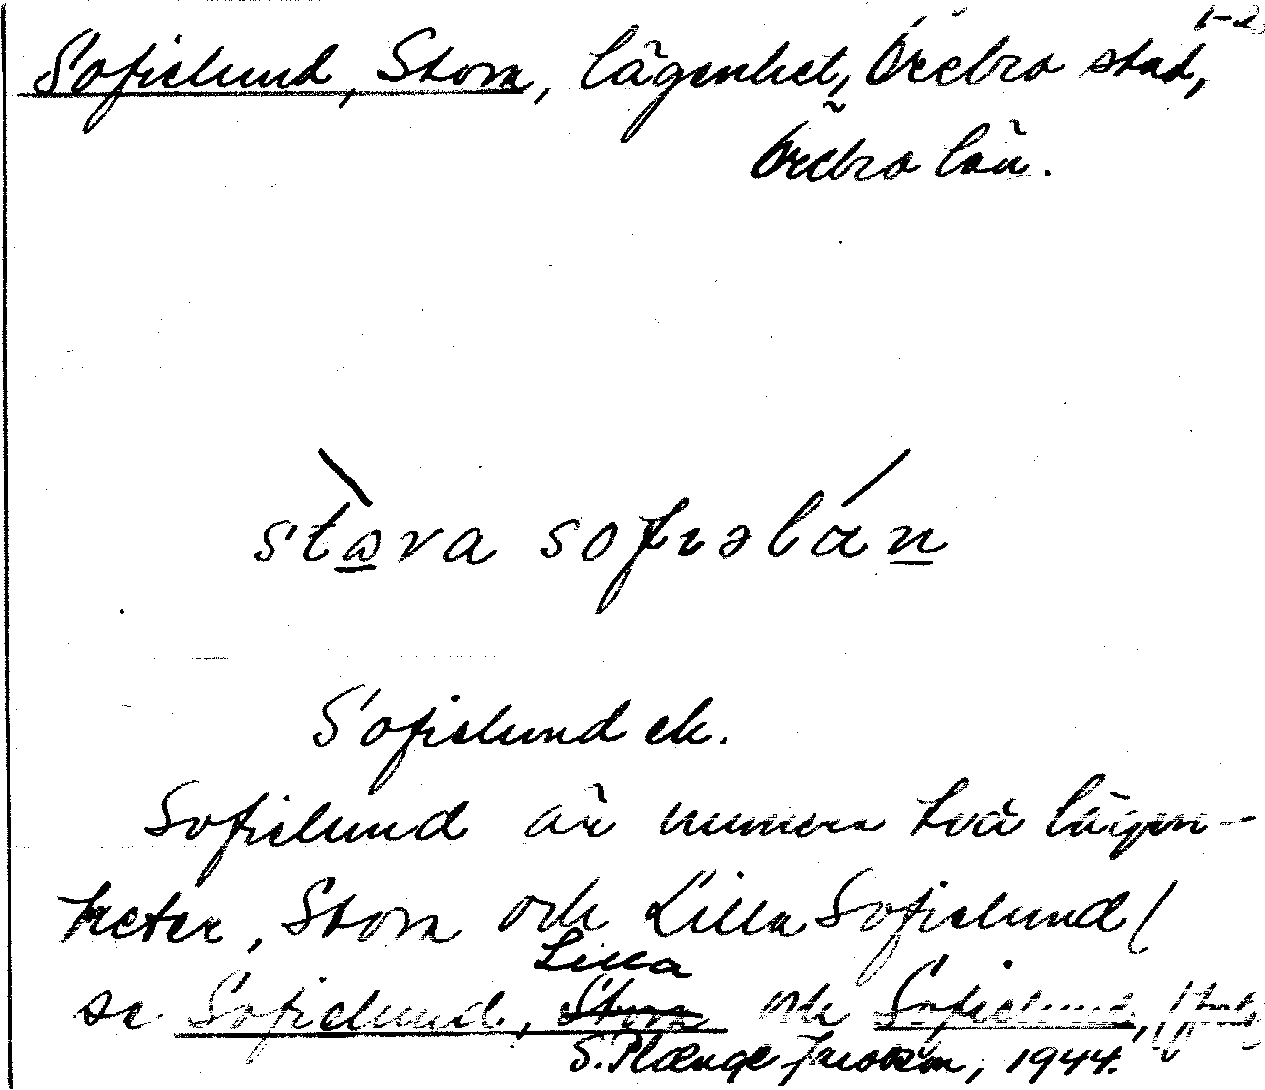 1-2
Sofielund, Stora, lägenhet, Örebro stad,
Örebro län.
stora sofiəlan
Sofielund ek.
Sofielund är numera två lägen-
heter, Stora och Lilla Sofielund (
Lilla
se Sofielund, Stora och Sofielund,
S. Plænge Jacobson, 1944.